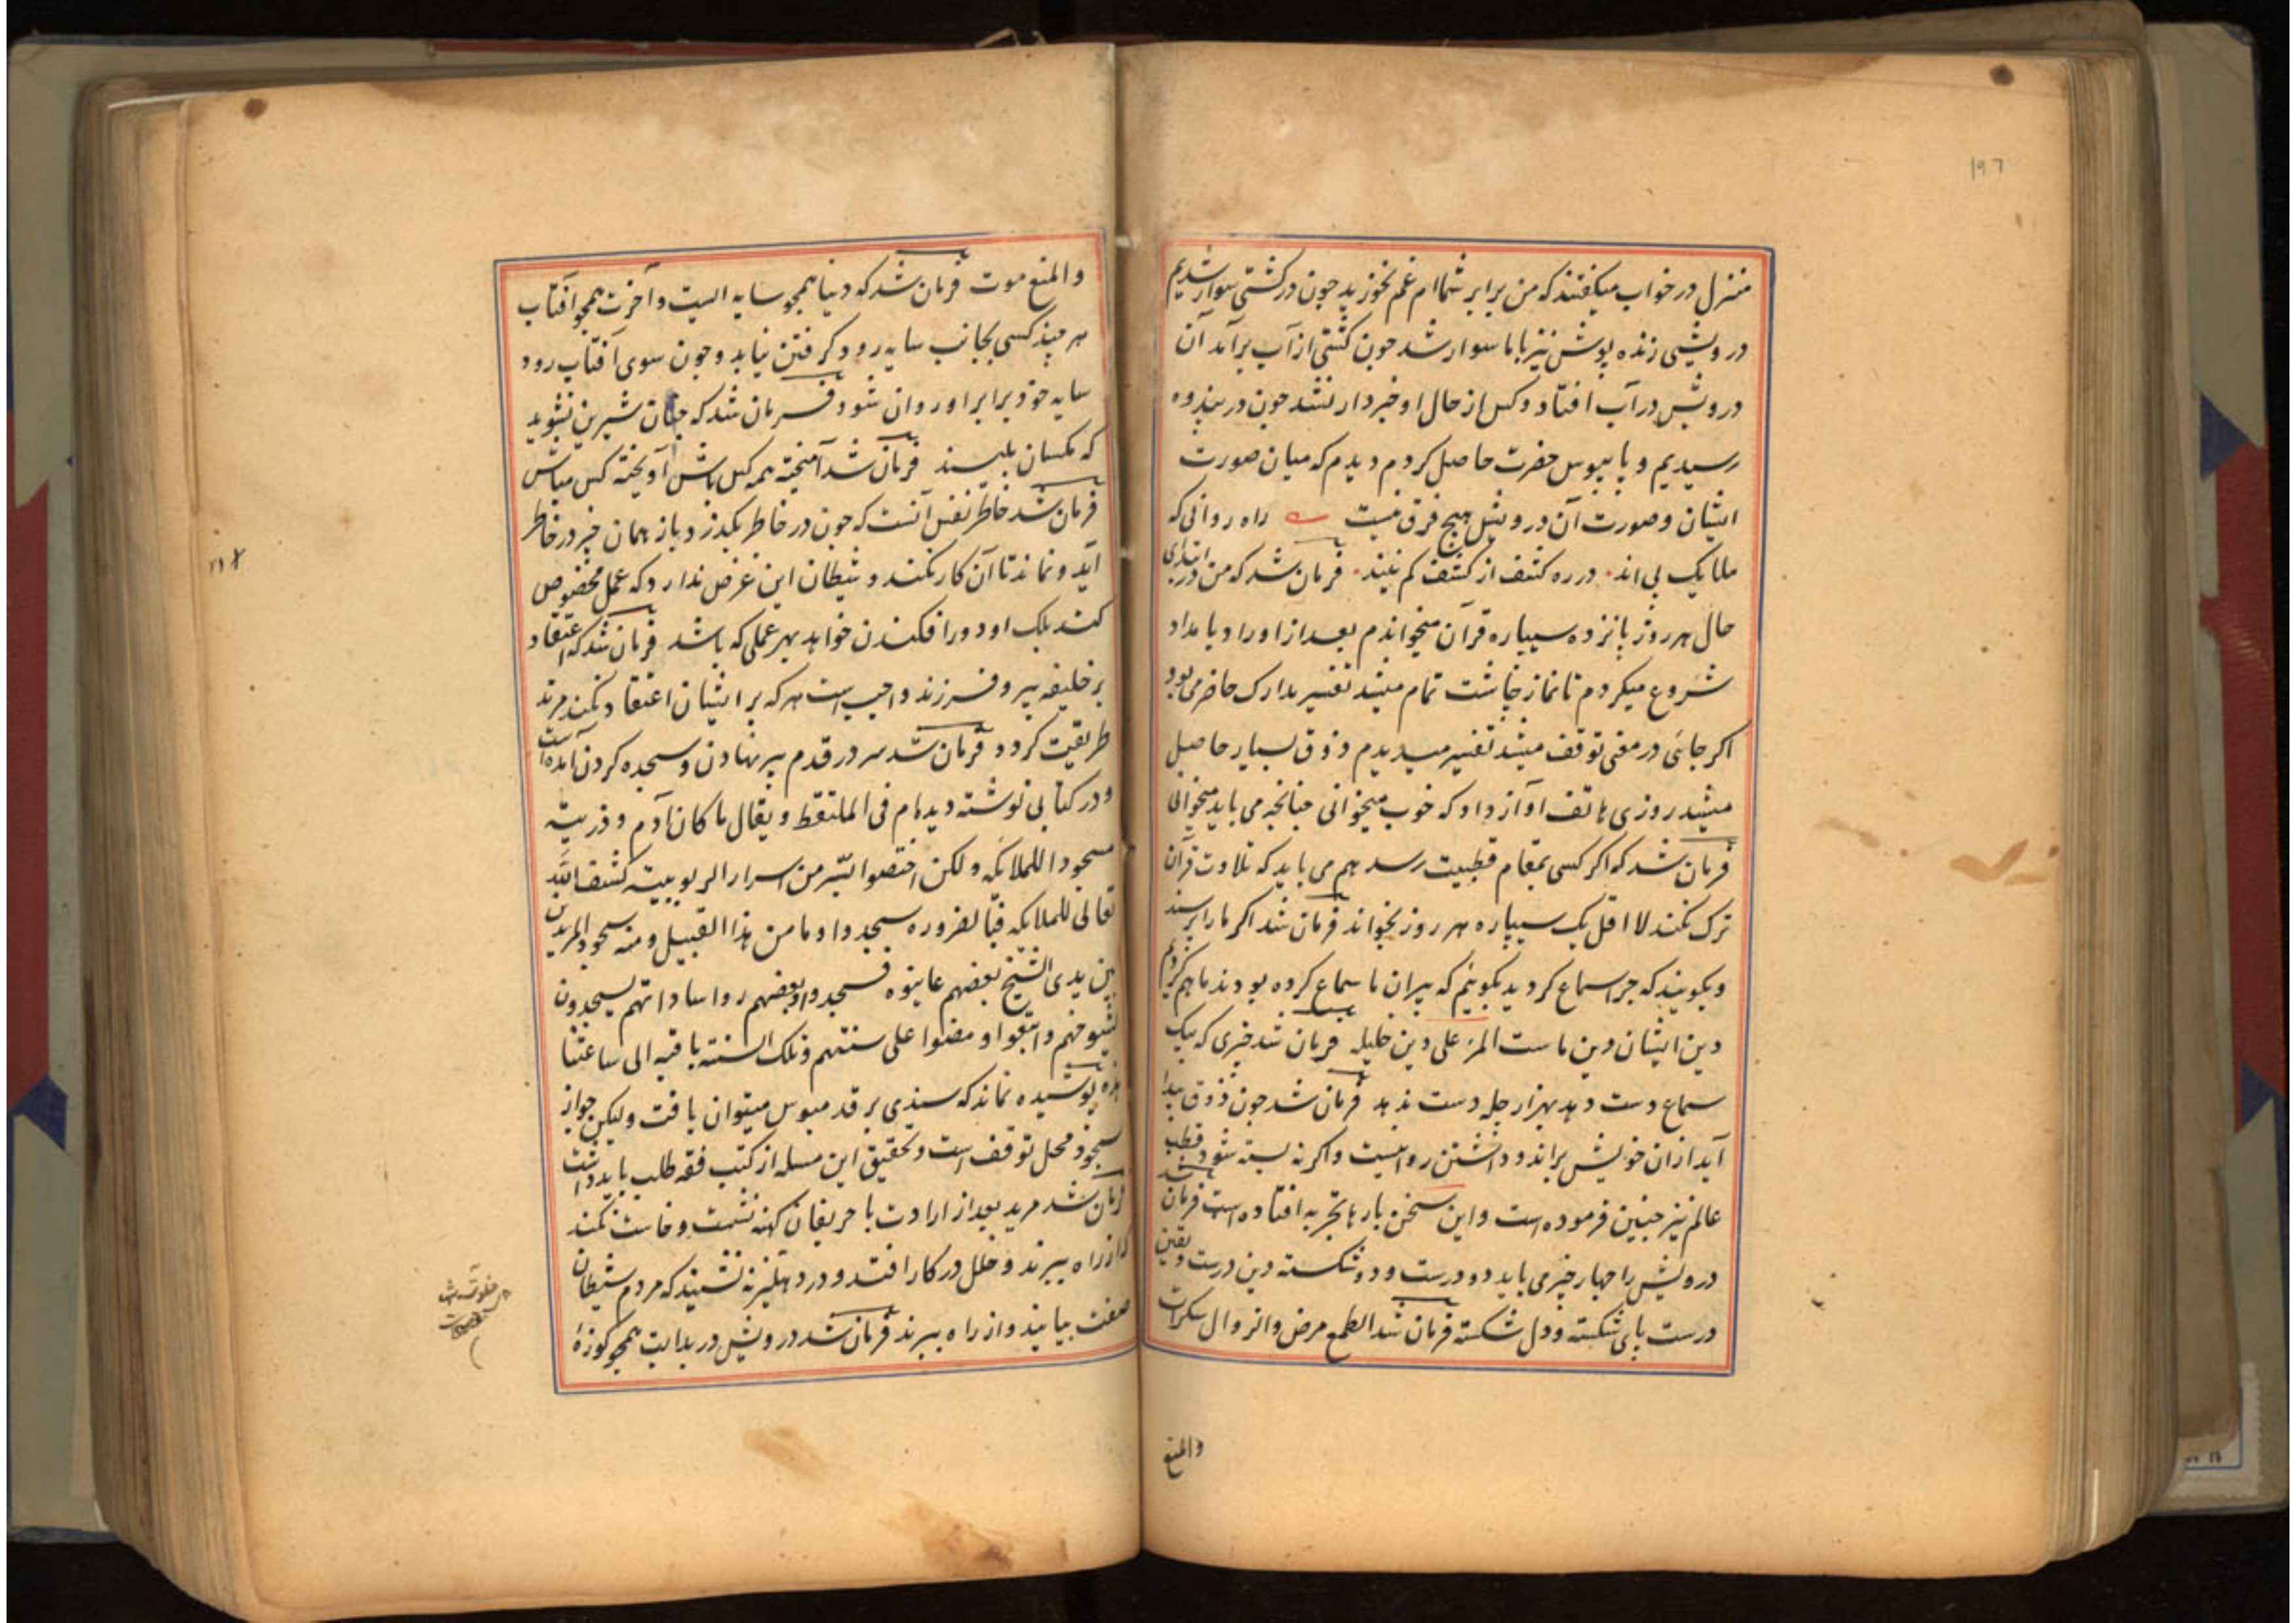 ۱۹۶
منزل در خواب میگفتند که من برابر شماام غم نخورید چون در کشتی سوار شدیم
درویشی ژنده پوش نیز باما سوار شد چون کشتی از آب برآمد آن
درویش در آب افتاد و کس از حال او خبردار نشد چون در پندوه
رسیدیم و پایبوس حضرت حاصل کردم دیدم که میان صورت
ایشان و صورت آن درویش هیچ فرق نیست راه روانی که
ملایک پی اند در ره کشف از کشف کم نیند فرمان شد که من در ابتدای
حال هر روز پانزده سیپاره قرآن میخواندم بعد از اوراد بامداد
شروع میکردم تا نماز چاشت تمام میشد تفسیر مدارک حاضر می بود
اکر جائی در معنی توقف میشد تفسیر میدیدم ذوق بسیار حاصل
میشد روزی هاتف آواز داد که خوب میخوانی چنانچه می باید میخوانی
فرمان شد که اکر کسی بمقام قطبیت رسد هم می باید که تلاوت قرآن
ترک نکند لا اقل یک سیپاره هر روز بخواند فرمان شد اکر ما را پرسند
و بکویند که چرا سماع کردید بکوئیم که پیران ما سماع کرده بودند ما هم کردیم
دین ایشان دین ماست المرء علی دین خلیله فرمان شد چیزی که بیک
سماع دست دهد بهزار چله دست ندهد فرمان شد چون ذوق پیدا
آید از ان خویش براند و داشتن روا نیست واکر نه بسته شود قطب
عالم نیز چنین فرموده است و این سخن بارها بتجربه افتاده است فرمان شد
درویش را چهار چیز می باید دو درست و دو شکسته دین درست و یقین
درست پای شکسته و دل شکسته فرمان شد الطمع مرض والسوال سکرات
والمنع
والمنع موت فرمان شد که دنیا همچو سایه است و آخرت همچو آفتاب
هر چند کسی بجانب سایه رود کرفتن نیابد و چون سوی آفتاب رود
سایه خود برابر او روان شود فرمان شد که چنان شیرین نشوید
که مکسان بلیسند فرمان شد آمیخته همه کس باش آویخته کس مباش
فرمان شد خاطر نفس آنست که چون در خاطر بکذرد باز همان چیز در خاطر
آید و نماند تا آن کار نکند و شیطان این غرض ندارد که عمل مخصوص
کند بلک او دور افکندن خواهد بهر عملی که باشد فرمان شد که اعتقاد
بر خلیفه پیر و فرزند واجب است هر که بر ایشان اعتقاد نکند مرتد
طریقت کردد فرمان شد سر در قدم پیر نهادن و سجده کردن آمده است
و در کتابی نوشته دیده ام فی الملتقط و یقال ما کان آدم و ذریته
مسجودا للملائکه ولکن اختصوا السّر من اسرار الربوبیته کشف الله
تعالی للملایکه فبالضروره سجدوا وما من هذا القبیل ومنه سجود المریدین
بین یدی الشیخ بعضهم عاینوه فسجدوا وبعضهم رواسا داتهم یسجدون
لشیوخهم واتبعوا ومضوا علی سنتهم وتلک السنته باقیه الی ساعتنا
هذه پوشیده نماند که سندی بر قدمبوس میتوان یافت ولیکن جواز
سجود محل توقف است و تحقیق این مسله از کتب فقه طلب باید داشت
فرمان شد مرید بعد از ارادت با حریفان کهنه نشست و خاست نکند
که از راه ببرند و خلل در کار افتد و در دهلیز نه نشیند که مردم شیطان
صفت بیایند و از راه ببرند فرمان شد درویش در بدایت همچو کوزهٔ